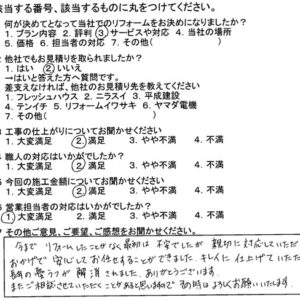 該当する番号、該当するものに丸をつけてください。
何が決めてとなって当社でのリフォームをお決めになりましたか？
1. プラン内容 2. 評判 ③サービスや対応 4. 当社の場所
5. 価格 6. 担当者の対応 7. その他(
他社でもお見積りを取られましたか？
1. はい ②. いいえ
→はいと答えた方へ質問です。
差支えなければ、他社のお見積り先を教えてください
1. フレッシュハウス 2. ニラスイ 3. 平成建設
4. テンイチ 5. リフォームイワサキ 6. ヤマダ電機
7. その他(
3 工事の仕上がりについてお聞かせください
1. 大変満足 ②. 満足 3. やや不満 4. 不満
4 職人の対応はいかがでしたか？
1. 大変満足 ②. 満足 3. やや不満 4. 不満
5 今回の施工金額についてお聞かせください
1. 大変満足 ②. 満足 3. やや不満 4. 不満
6 営業担当者の対応はいかがでしたか？
①. 大変満足 2. 満足 3. やや不満 4. 不満
7 その他ご意見、ご要望、ご感想をお聞かせください
今まで リフォームしたことがなく最初は 不安でしたが 親切に対応していただ
おかげで 安心してお任せすることができました。キレイに 仕上げていただ
長年の 憂うつが 解消されました。ありがとうございます。
またご相談させていただくことがあると思いますので その時はよろしくお願いいたします。